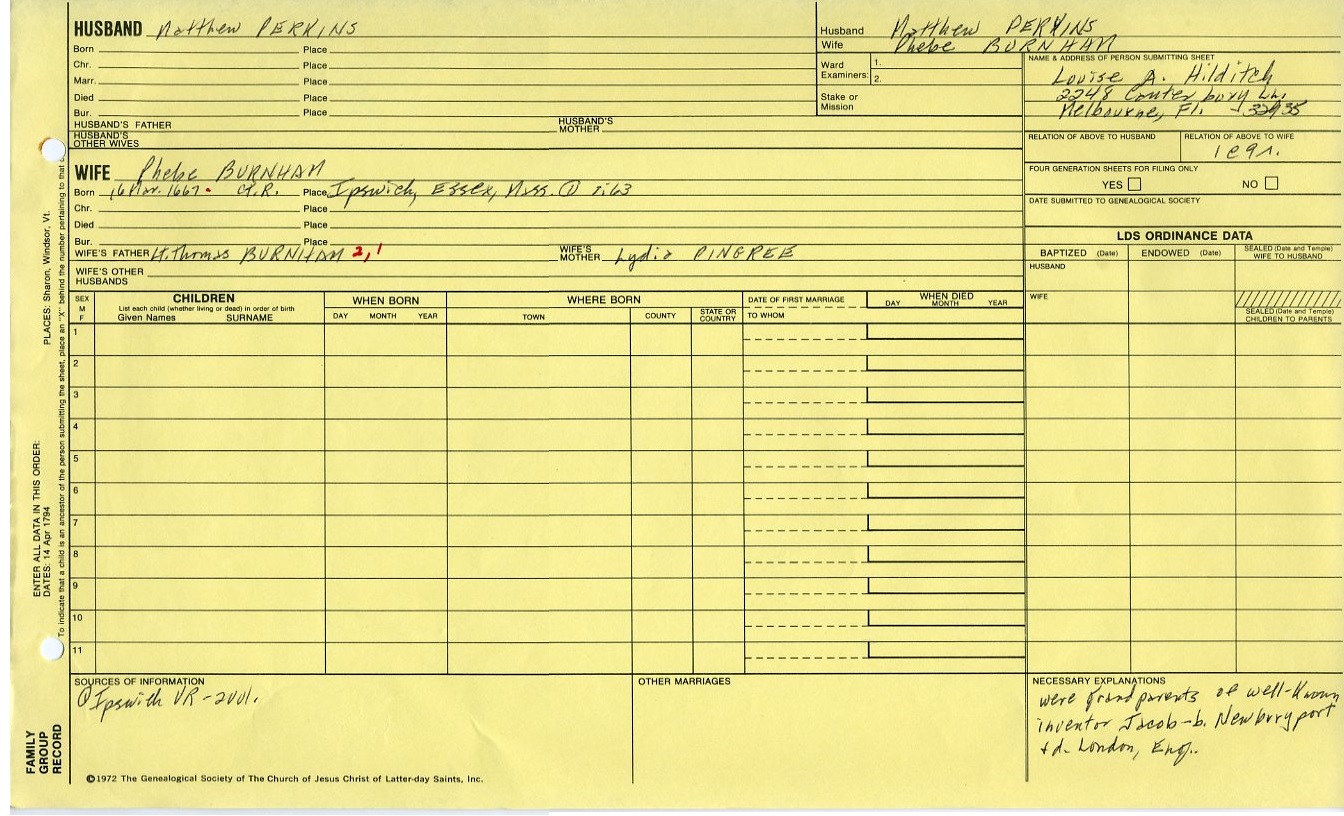 HUSBAND Matthew PERKINS
Born Place
Chr. Place
Marr. Place
Died Place
Bur. Place
HUSBAND'S FATHER HUSBAND'S MOTHER
HUSBAND'S OTHER WIVES
Husband Matthew PERKINS
Wife Phebe BURNHAM
Ward Examiners: 1.
2.
Stake or Mission
NAME & ADDRESS OF PERSON SUBMITTING SHEET
Louise A. Hilditch
2248 Canterbury Ln.
Melbourne, Fl. - 32935
RELATION OF ABOVE TO HUSBAND RELATION OF ABOVE TO WIFE
FOUR GENERATION SHEETS FOR FILING ONLY
YES NO
DATE SUBMITTED TO GENEALOGICAL SOCIETY
WIFE Phebe BURNHAM
Born 16 Mar. 1667. Ct.R. Place Ipswich, Essex, Mass. ① 1:63
Chr. Place
Died Place
Bur. Place
WIFE'S FATHER Lt. Thomas BURNHAM 2,1 WIFE'S MOTHER Lydia PINGREE
WIFE'S OTHER HUSBANDS
LDS ORDINANCE DATA
BAPTIZED (Date) ENDOWED (Date) SEALED (Date and Temple) WIFE TO HUSBAND
HUSBAND
WIFE
SEALED (Date and Temple) CHILDREN TO PARENTS
SEX M F
CHILDREN
List each child (whether living or dead) in order of birth
Given Names SURNAME
WHEN BORN
DAY MONTH YEAR
WHERE BORN
TOWN COUNTY STATE OR COUNTRY
DATE OF FIRST MARRIAGE
TO WHOM
WHEN DIED
DAY MONTH YEAR
1
2
3
4
5
6
7
8
9
10
11
SOURCES OF INFORMATION
① Ipswich VR - 2vol.
OTHER MARRIAGES
NECESSARY EXPLANATIONS
were grandparents of well-known
inventor Jacob - b. Newburyport
+ d. London, Eng.
©1972 The Genealogical Society of The Church of Jesus Christ of Latter-day Saints, Inc.
FAMILY GROUP RECORD
ENTER ALL DATA IN THIS ORDER:
DATES: 14 Apr 1794
PLACES: Sharon, Windsor, Vt.
To indicate that a child is an ancestor of the person submitting the sheet, place an "X" behind the number pertaining to that